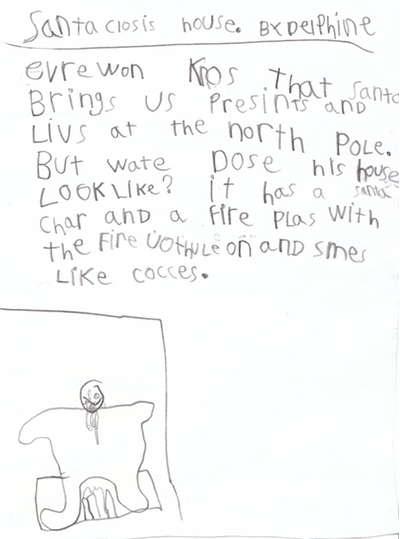 Santa closis house. By Delphine
evrewon Knos that santa
Brings us Presints and
Livs at the north Pole.
But wate Dose his house
LOOK Like? it has a santa
Char and a Fire Plas with
the Fire on and smes
Like cocces.